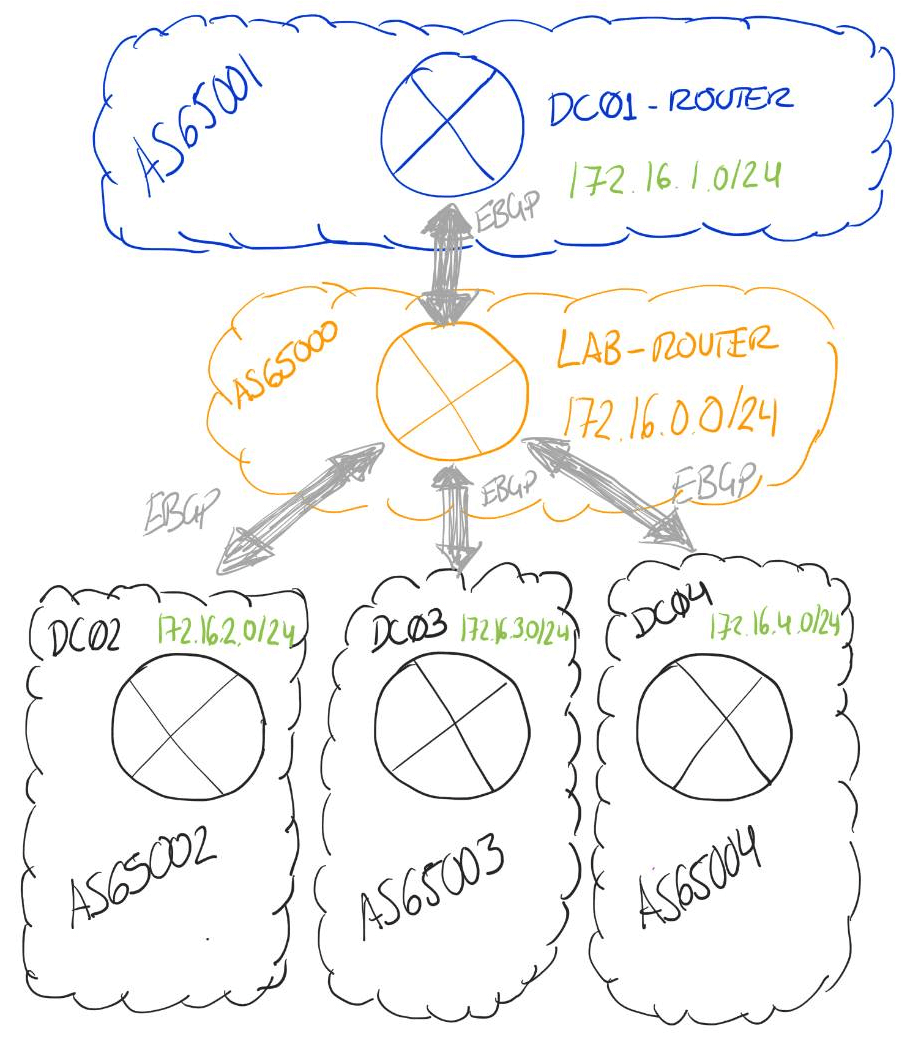 AS65001
DC01-ROUTER
172.16.1.0/24
EBGP
AS65000
LAB-ROUTER
172.16.0.0/24
EBGP
EBGP
EBGP
DC02 172.16.2.0/24
DC03 172.16.3.0/24
DC04 172.16.4.0/24
AS65002
AS65003
AS65004